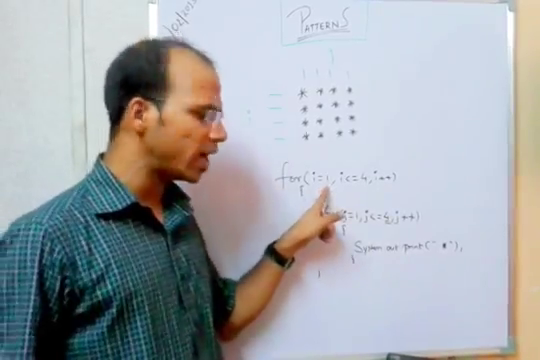 02/2013
PATTERNS
* * * *
* * * *
* * * *
* * * *
for(i=1, i<=4, i++)
{
j=1, j<=4, j++)
{
System out print(" *"),
}
}